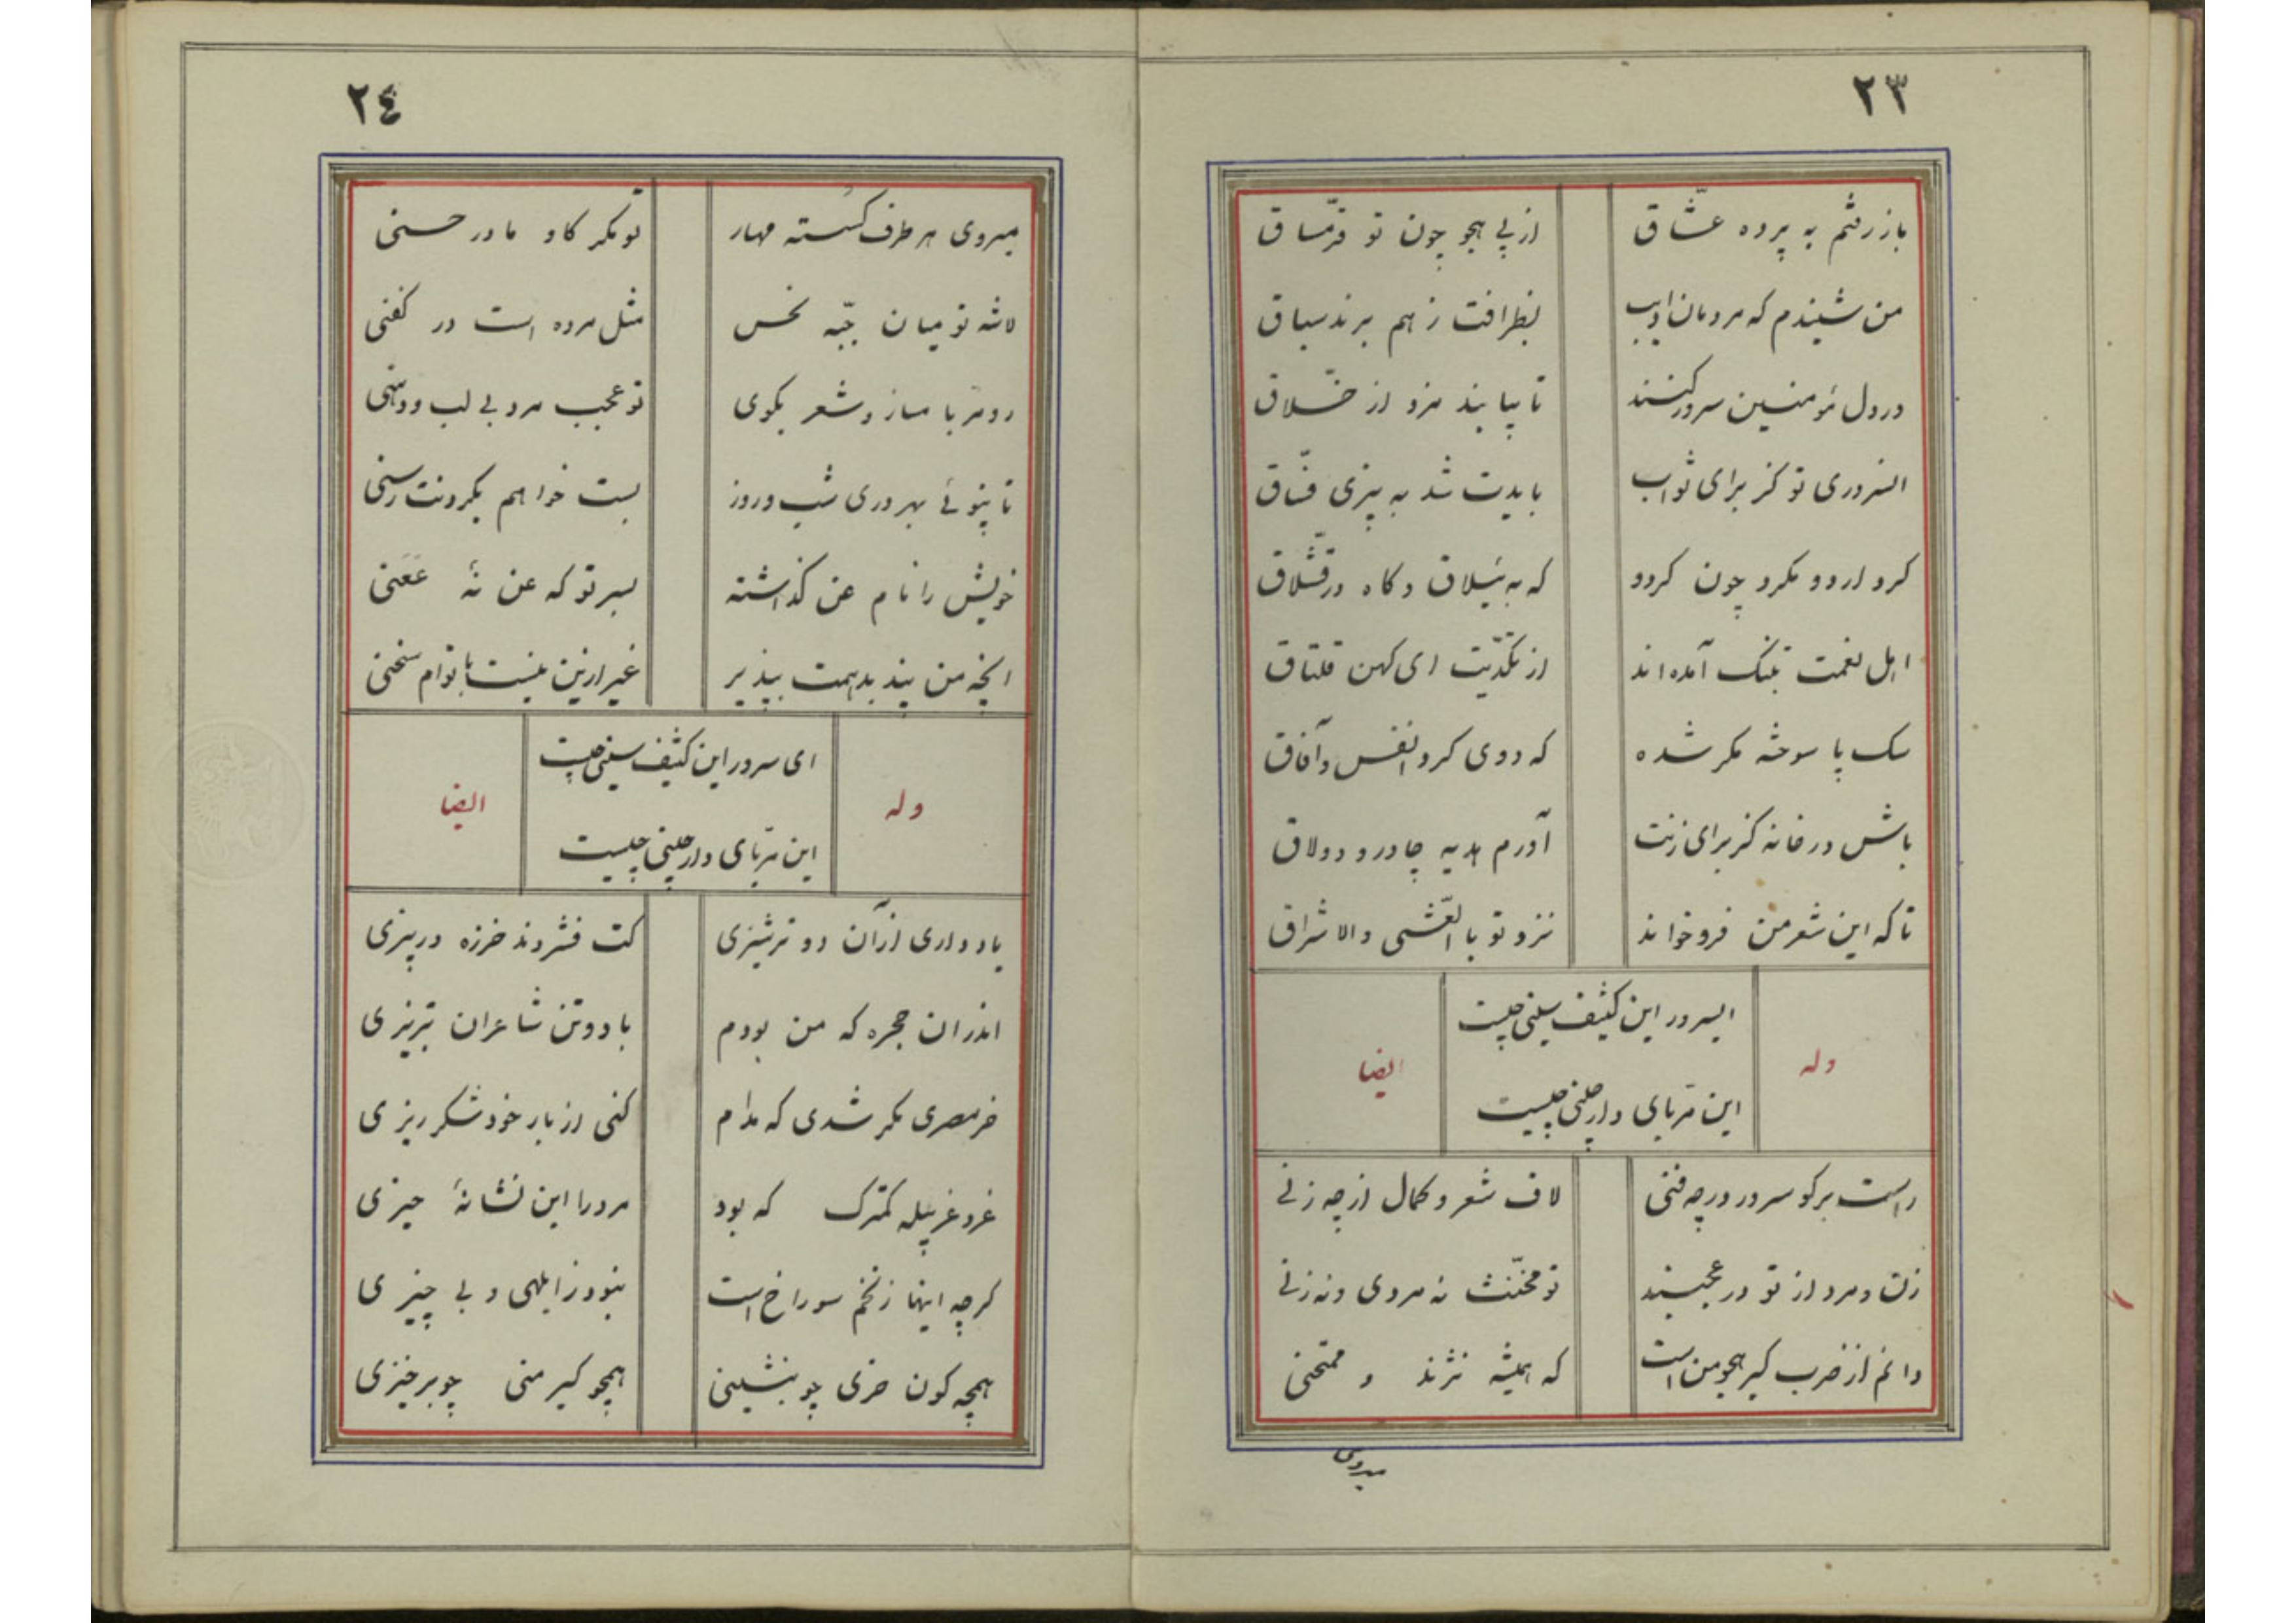 ٢٣
باز رفتم به پرده عشّاق از پی هجو چون تو قرمّساق
من شنیدم که مردمان ادیب بظرافت ز هم برند سباق
در دل مؤمنین سرور کنند تا بیابند مزد از خلّاق
السروری تو کز برای ثواب بایدت شد به پیزی فسّاق
کرد اردو مکرد چون کردو که به ییلاق و کاه در قشّلاق
اهل نعمت بتنک آمده اند از تکدّیت ای کهن قلتاق
سک پا سوخته مکر شده که دوی کرد انفس و آفاق
باش در خانه کز برای زنت آورم هدیه چادر و دولاق
تا که این شعر من فرو خواند نزد تو با العّشی والاشراق
وله
ایسرور این کثیف سینی چیست
این ترّبای دار چلنی چیست
ایضا
راست برکو سرور در چه فنی لاف شعر و کمال از چه زنی
زن و مرد از تو در عجبند تو مخنّث نه مردی و نه زنی
دانم از ضرب کیر هجو من است که همیشه نژند و ممتحنی
میروی
٢٤
میروی هر طرف کسسته مهار تو مکر کاو مادر حسنی
لاشه تو میان جبّه نحس مثل مرده است در کفنی
رو مربا مساز و شعر مکوی تو عجب مرد بی لب و دهنی
تا نپوئے بهر دری شب و روز بست خواهم بکردنت رسنی
خویش را نام عن کذاشته بسر تو که عن نهٔ عَفَنی
انچه من پند بدهمت بپذیر غیر ازین نیست با توام سخنی
وله
ای سرور این کثیف سینی چیست
این ترّبای دار چلنی چیست
ایضا
یاد داری از آن دو ترشیزی کت فشردند خرزه در پیزی
اندران حجره که من بودم با دو تن شاعران تبریزی
خر مصری مکر شدی که مدام کنی از بار خود شکر ریزی
غر و غربیله کمترک که بود مرد را این نشانهٔ حیزی
کرچه اینها ز نخم سوراخ است نبود ز ابلهی و بی چیزی
همچه کون خری چو بنشینی همچو کیر منی چو برخیزی